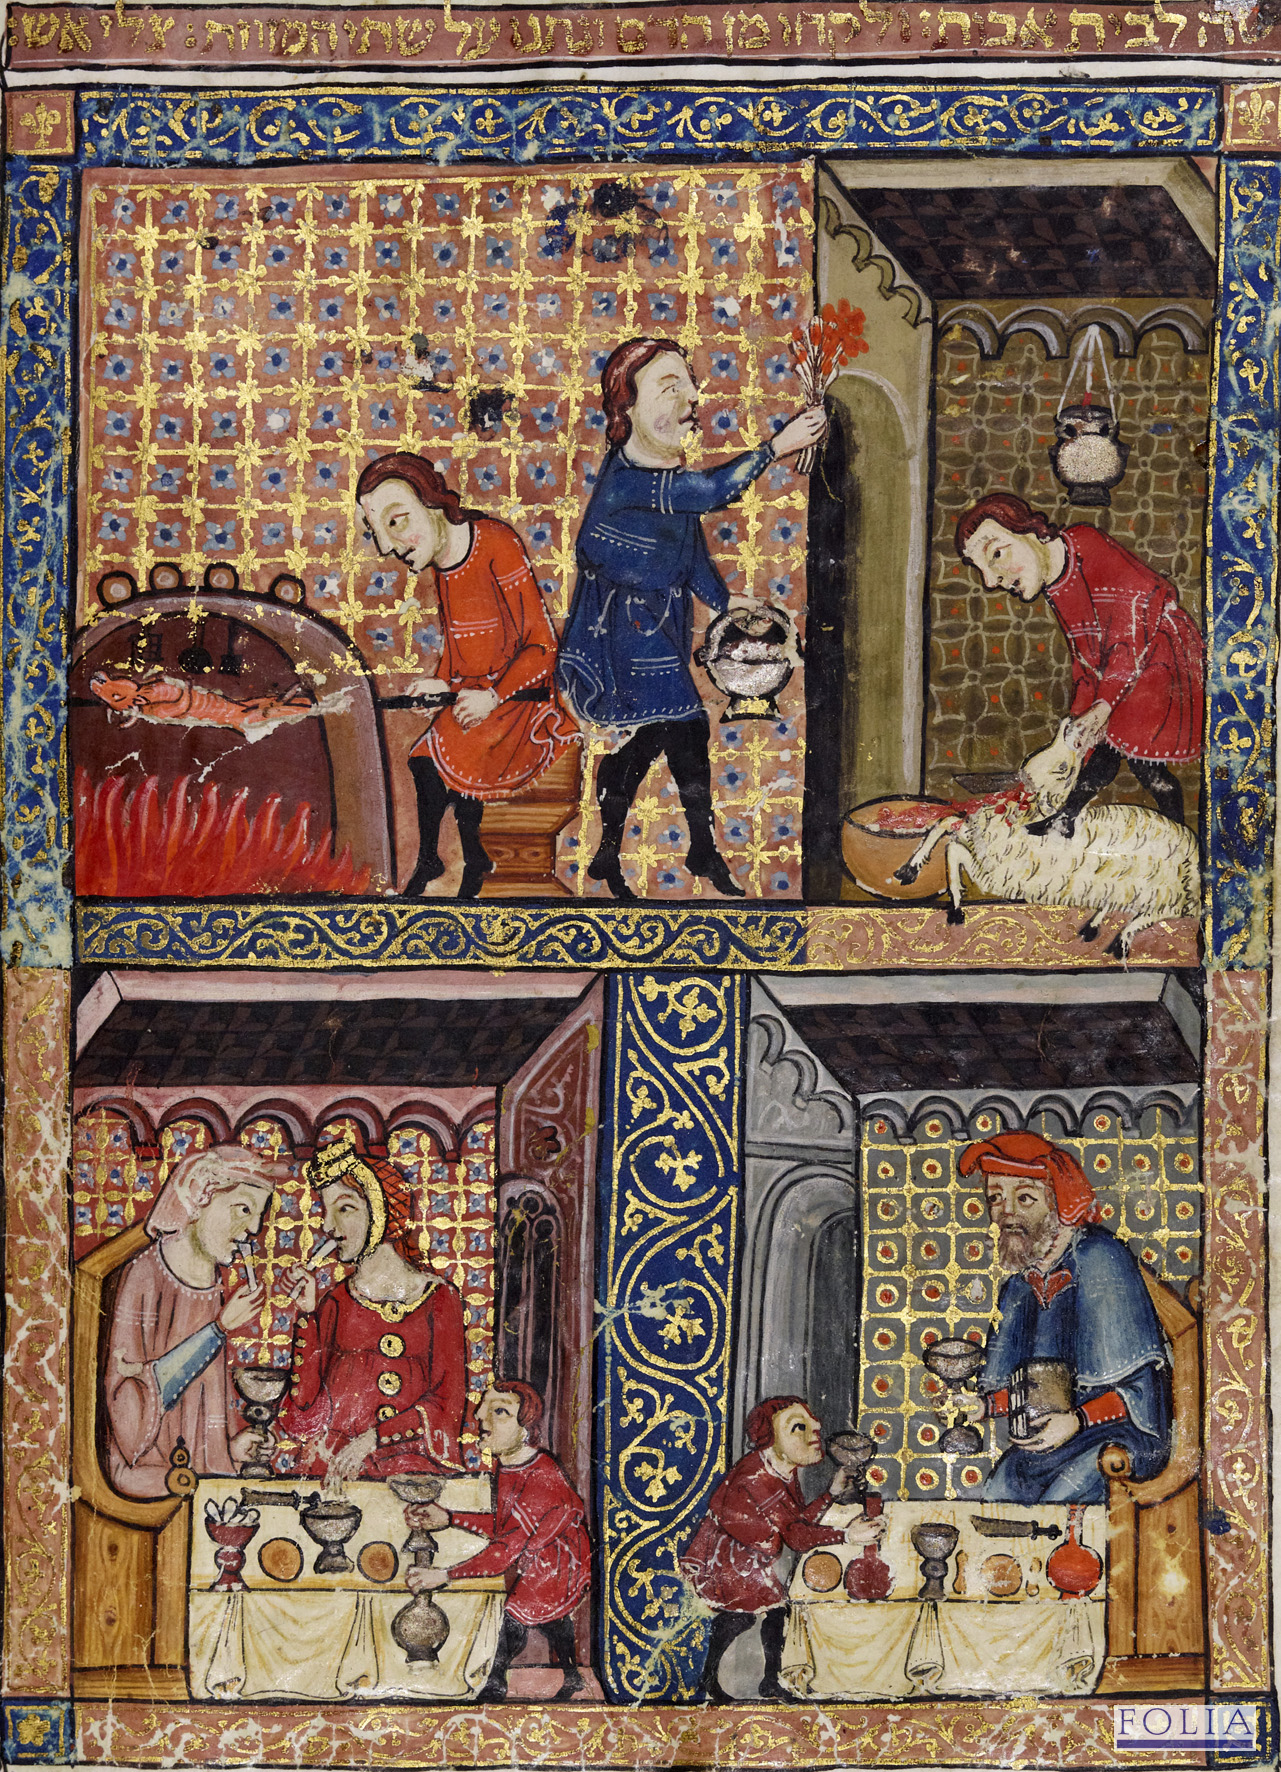 שה לבית אבות: ולקחו מן הדם ונתנו על שתי המזוזות: צלי אש:
FOLIA